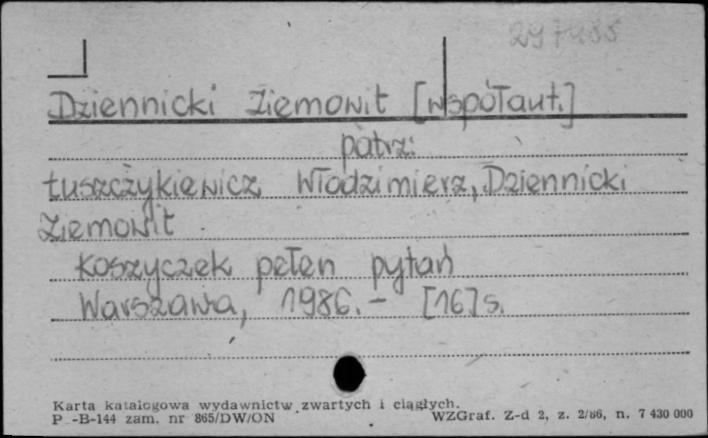 297485
Dziennicki Ziemowit [współaut.]
patrz:
Łuszczykiewicz Włodzimierz, Dziennicki
Ziemowit
Koszyczek pełen pytań
Warszawa, 1986. – [16] s.
Karta katalogowa wydawnictw zwartych i ciągłych.
P-B-144 zam. nr 865/DW/ON
WZGraf. Z-d 2, z. 2/86, n. 7 430 000